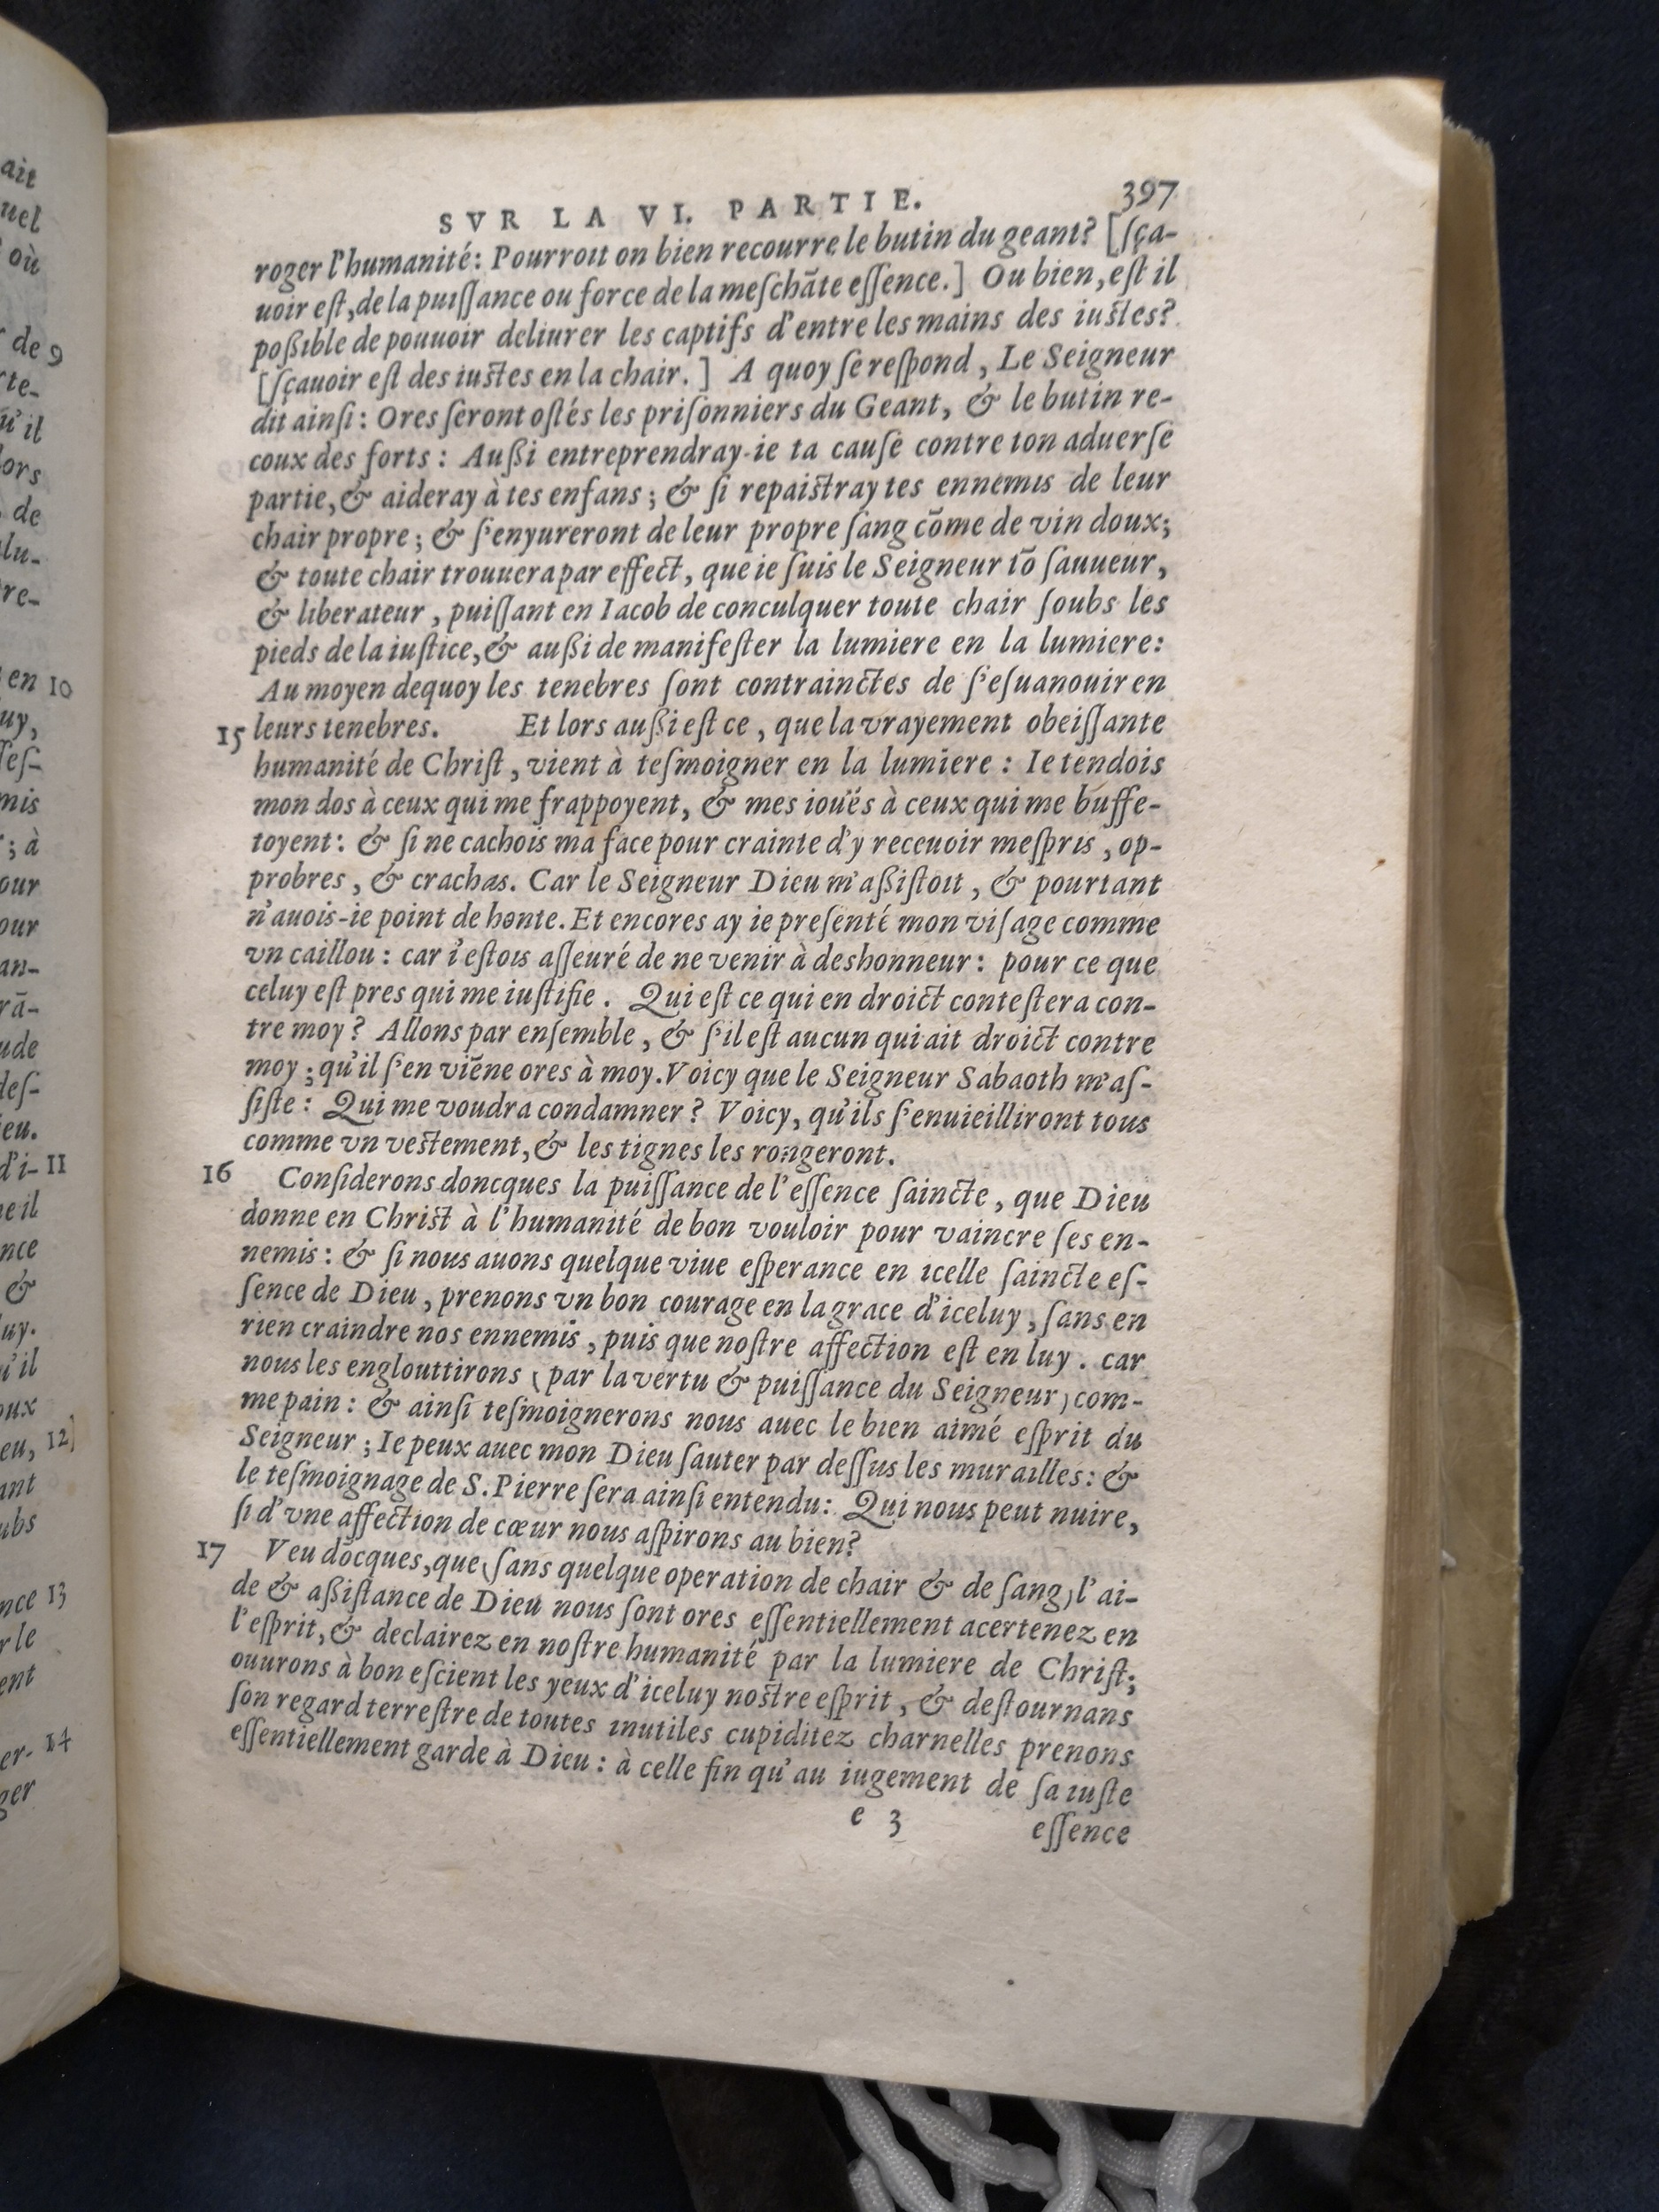 ait
uel
où
de 9
rte-
u'il
lors
de
lu-
re-
en 10
uy,
mis
; à
our
our
an-
rā-
ude
des-
ieu.
d'i- 11
eil
nce
&
uy.
i'il
oux
eu, 12]
ant
ubs
nce 13
r le
ent
er- 14
ger
SVR LA VI. PARTIE. 397
roger l'humanité: Pourroit on bien recourre le butin du geant? [ſça-
uoir eſt, de la puiſſance ou force de la meſchāte eſſence.] Ou bien, eſt il
poßible de pouuoir deliurer les captifs d'entre les mains des iuſtes?
[ſçauoir eſt des iuſtes en la chair.] A quoy ſe reſpond, Le Seigneur
dit ainſi: Ores ſeront oſtés les priſonniers du Geant, & le butin re-
coux des forts: Außi entreprendray-ie ta cauſe contre ton aduerſe
partie, & aideray à tes enfans; & ſi repaiſtray tes ennemis de leur
chair propre; & ſ'enyureront de leur propre ſang cōme de vin doux;
& toute chair trouuera par effect, que ie ſuis le Seigneur tō ſauueur,
& liberateur, puiſſant en Iacob de conculquer toute chair ſoubs les
pieds de la iuſtice, & außi de manifeſter la lumiere en la lumiere:
Au moyen dequoy les tenebres ſont contrainctes de ſ'eſuanouir en
15 leurs tenebres. Et lors außi eſt ce, que la vrayement obeiſſante
humanité de Chriſt, vient à teſmoigner en la lumiere: Ie tendois
mon dos à ceux qui me frappoyent, & mes iouës à ceux qui me buffe-
toyent: & ſi ne cachois ma face pour crainte d'y receuoir meſpris, op-
probres, & crachas. Car le Seigneur Dieu m'aßiſtoit, & pourtant
n'auois-ie point de honte. Et encores ay ie preſenté mon viſage comme
vn caillou: car i'eſtois aſſeuré de ne venir à deshonneur: pour ce que
celuy eſt pres qui me iuſtifie. Qui eſt ce qui en droict conteſtera con-
tre moy? Allons par enſemble, & ſ'il eſt aucun qui ait droict contre
moy; qu'il ſ'en viēne ores à moy. Voicy que le Seigneur Sabaoth m'aſ-
ſiſte: Qui me voudra condamner? Voicy, qu'ils ſ'enuieilliront tous
comme vn veſtement, & les tignes les rongeront.
16 Conſiderons doncques la puiſſance de l'eſſence ſaincte, que Dieu
donne en Chriſt à l'humanité de bon vouloir pour vaincre ſes en-
nemis: & ſi nous auons quelque viue eſperance en icelle ſaincte eſ-
ſence de Dieu, prenons vn bon courage en la grace d'iceluy, ſans en
rien craindre nos ennemis, puis que noſtre affection eſt en luy. car
nous les englouttirons (par la vertu & puiſſance du Seigneur) com-
me pain: & ainſi teſmoignerons nous auec le bien aimé eſprit du
Seigneur; Ie peux auec mon Dieu ſauter par deſſus les murailles: &
le teſmoignage de S. Pierre ſera ainſi entendu: Qui nous peut nuire,
ſi d'vne affection de cœur nous aſpirons au bien?
17 Veu dōcques, que (ſans quelque operation de chair & de ſang) l'ai-
de & aßiſtance de Dieu nous ſont ores eſſentiellement acertenez en
l'eſprit, & declairez en noſtre humanité par la lumiere de Chriſt;
ouurons à bon eſcient les yeux d'iceluy noſtre eſprit, & deſtournans
ſon regard terreſtre de toutes inutiles cupiditez charnelles prenons
eſſentiellement garde à Dieu: à celle fin qu'au iugement de ſa iuſte
e 3 eſſence